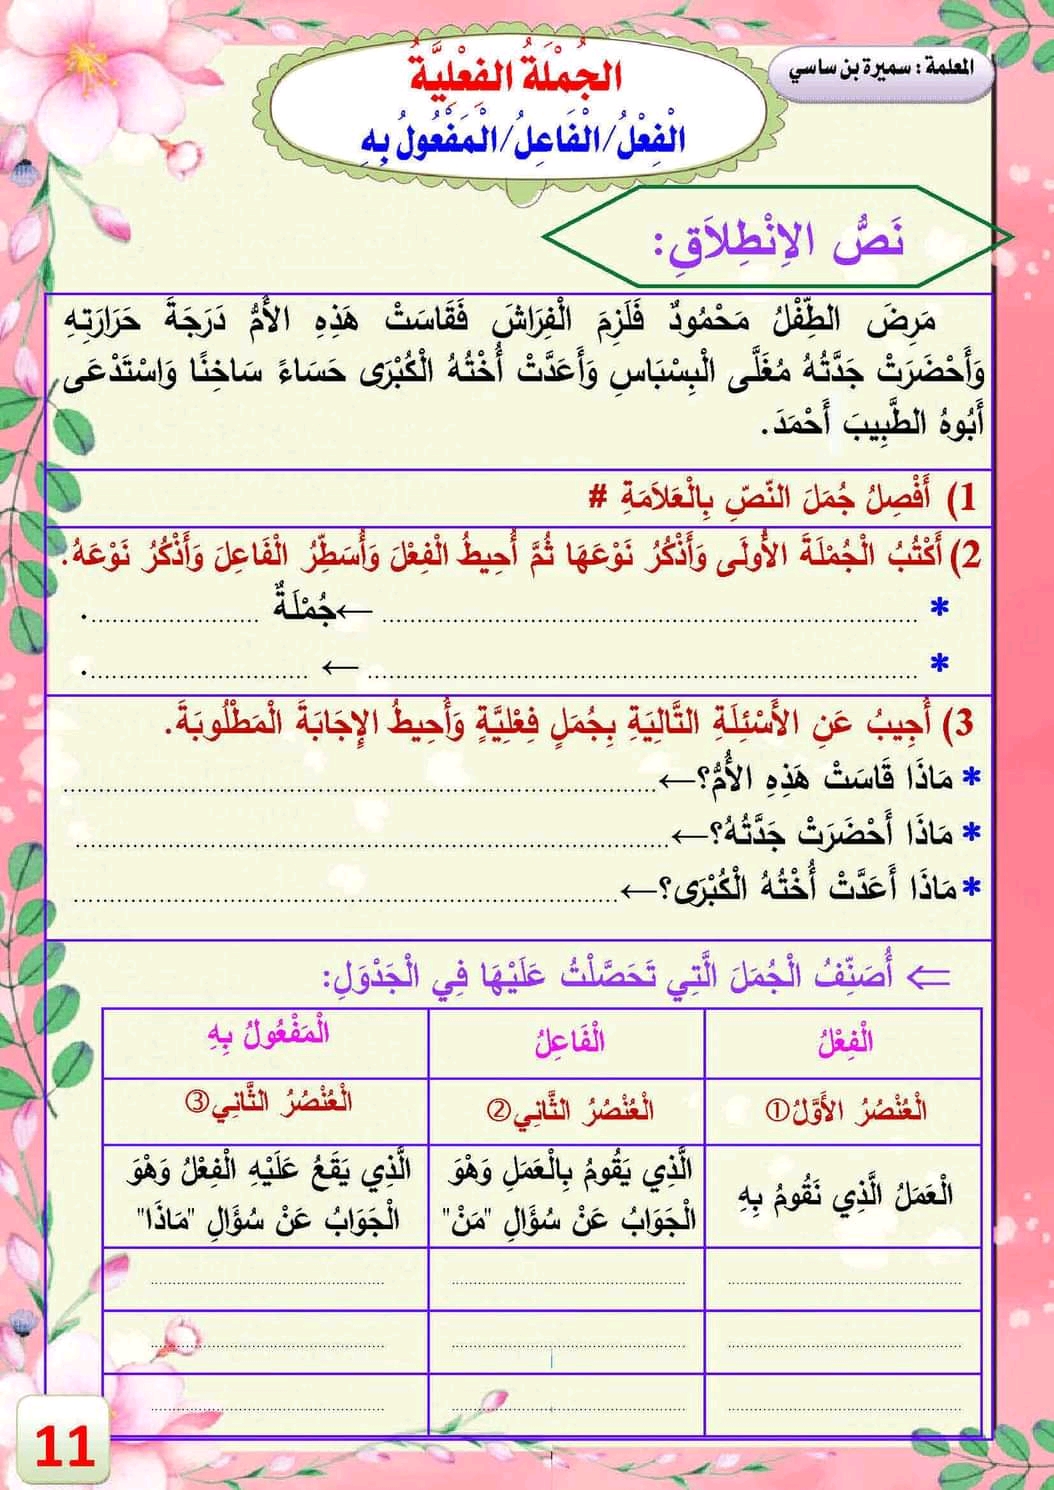 المعلمة : سميرة بن ساسي
الجُمْلَةُ الفِعْلِيَّةُ
الْفِعْلُ/الْفَاعِلُ/الْمَفْعُولُ بِهِ
نَصُّ الاِنْطِلاَقِ:
مَرِضَ الطِّفْلُ مَحْمُودٌ فَلَزِمَ الْفِرَاشَ فَقَاسَتْ هَذِهِ الأُمُّ دَرَجَةَ حَرَارَتِهِ
وَأَحْضَرَتْ جَدَّتُهُ مُغَلَّى الْبِسْبَاسِ وَأَعَدَّتْ أُخْتُهُ الْكُبْرَى حَسَاءً سَاخِنًا وَاسْتَدْعَى
أَبُوهُ الطَّبِيبَ أَحْمَدَ.
1) أَفْصِلُ جُمَلَ النّصِّ بِالْعَلاَمَةِ #
2) أَكْتُبُ الْجُمْلَةَ الأُولَى وَأَذْكُرُ نَوْعَهَا ثُمَّ أُحِيطُ الْفِعْلَ وَأُسَطِّرُ الْفَاعِلَ وَأَذْكُرُ نَوْعَهُ.
* .......................................... ←جُمْلَةٌ ......................
* .......................................... ← ............................
3) أُجِيبُ عَنِ الأَسْئِلَةِ التَّالِيَةِ بِجُمَلٍ فِعْلِيَّةٍ وَأُحِيطُ الإِجَابَةَ الْمَطْلُوبَةَ.
* مَاذَا قَاسَتْ هَذِهِ الأُمُّ؟←..........................................
* مَاذَا أَحْضَرَتْ جَدَّتُهُ؟←..........................................
* مَاذَا أَعَدَّتْ أُخْتُهُ الْكُبْرَى؟←..........................................
⇐ أُصَنِّفُ الْجُمَلَ الَّتِي تَحَصَّلْتُ عَلَيْهَا فِي الْجَدْوَلِ:
الْفِعْلُ الْفَاعِلُ الْمَفْعُولُ بِهِ
الْعُنْصُرُ الأَوَّلُ① الْعُنْصُرُ الثَّانِي② الْعُنْصُرُ الثَّانِي③
الْعَمَلُ الَّذِي نَقُومُ بِهِ
الَّذِي يَقُومُ بِالْعَمَلِ وَهْوَ
الْجَوَابُ عَنْ سُؤَالِ "مَنْ"
الَّذِي يَقَعُ عَلَيْهِ الْفِعْلُ وَهْوَ
الْجَوَابُ عَنْ سُؤَالِ "مَاذَا"
11